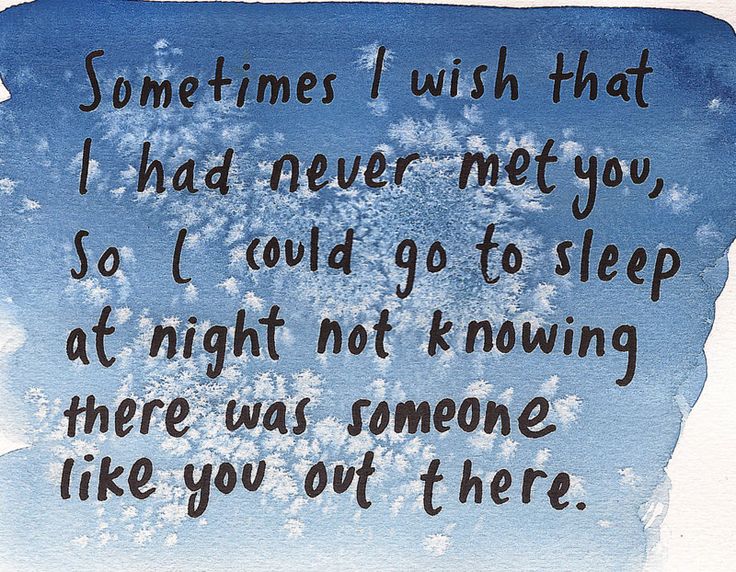 Sometimes I wish that
I had never met you,
So I could go to sleep
at night not knowing
there was someone
like you out there.